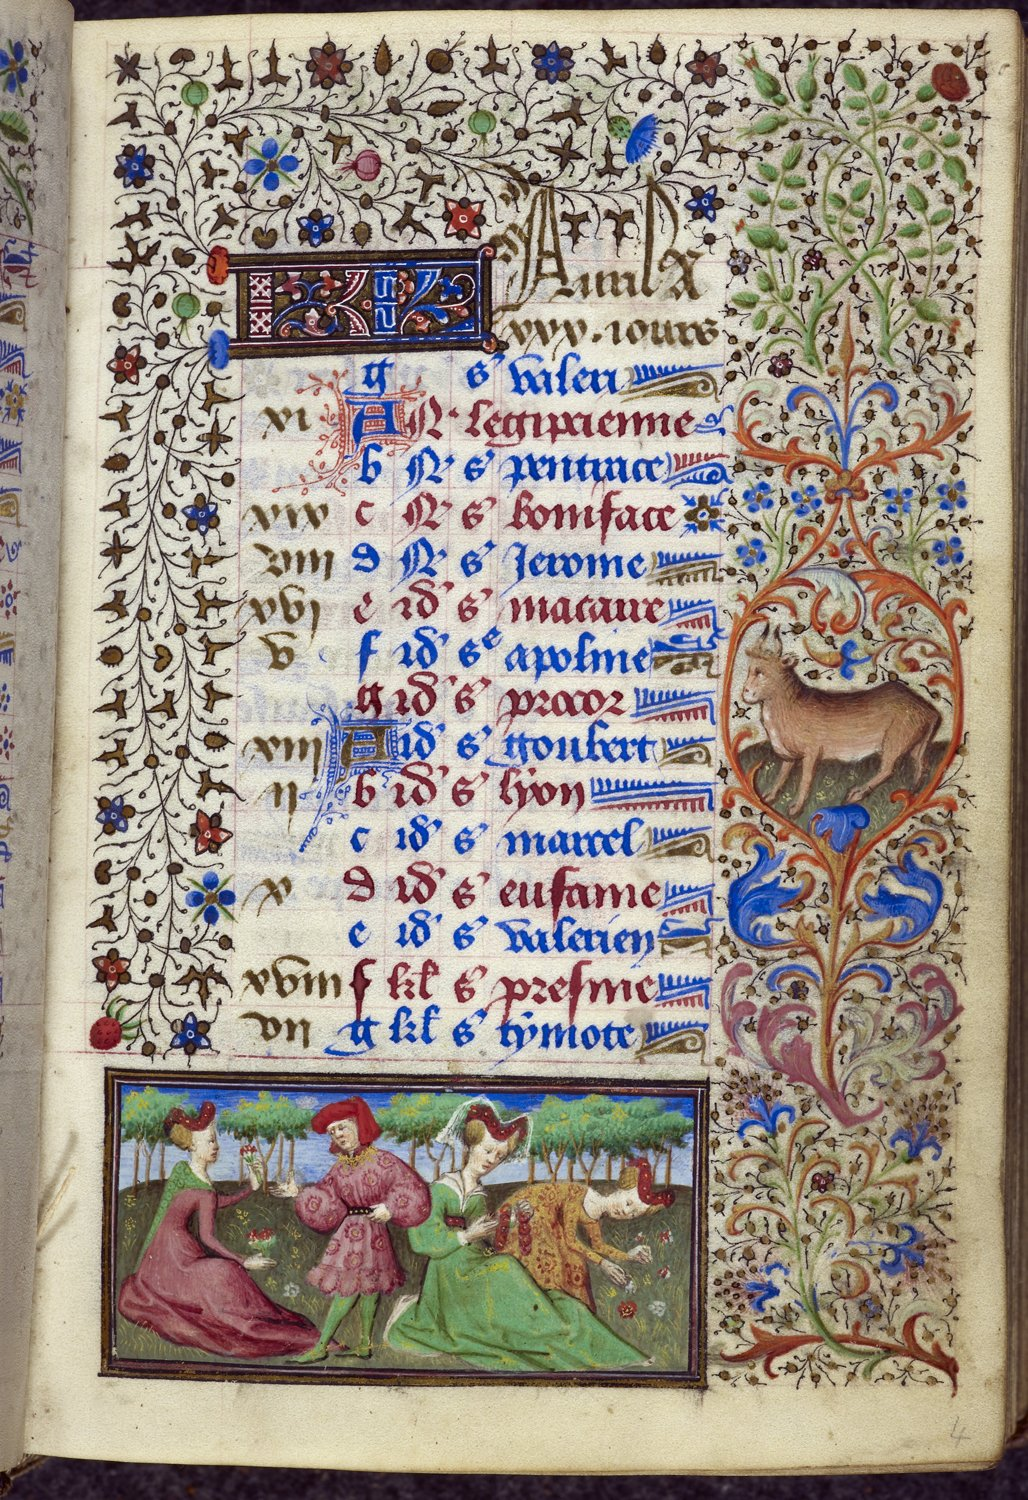 KL Auril a
xxx. iours
g s' valeri
xi A N' legipcienne
b N' s'
xix c N' s' boniface
viii d N' s' Jerome
xvi e id' s' macaire
v f id' se apoline
g id' s' procor
xiii A id' s' goubert
ii b id' s' lyon
c id' s' marcel
x d id' s' eufame
e id' s' valerien
xviii f kl s' presme
vii g kl s' tymote
4